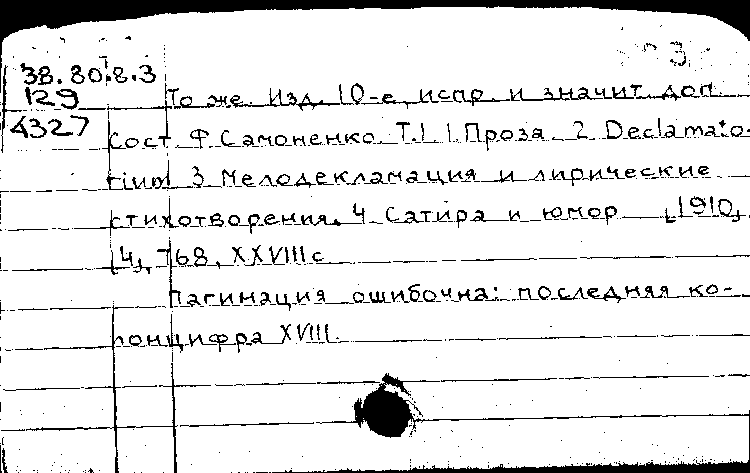 3
38.80.8.3
129
4327
То же. Изд. 10-е, испр. и значит. доп.
Сост. Ф. Самоненко. Т.1. 1. Проза. 2. Declamato-
rium 3. Мелодекламация и лирические
стихотворения. 4. Сатира и юмор [1910].
[4], 768, XXVIII с
Пагинация ошибочна: последняя ко-
лонцифра XVIII.